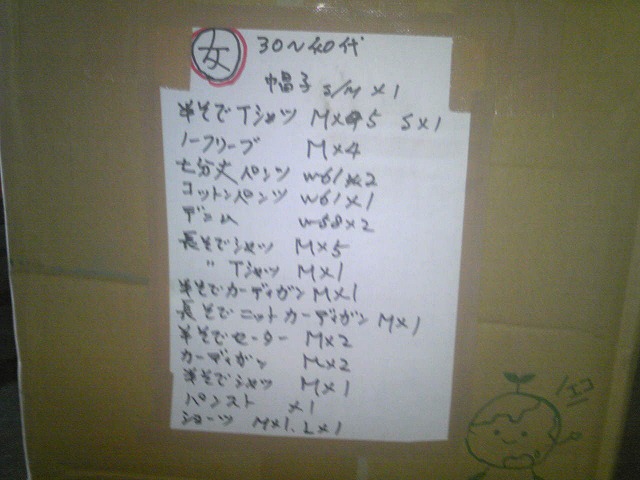 女 30~40代
帽子 S/M×1
半そでTシャツ M×5 S×1
ノーフリーブ M×4
七分丈パンツ W61×2
コットンパンツ W61×1
デニム W58×2
長そでシャツ M×5
〃 Tシャツ M×1
半そでカーディガン M×1
長そでニットカーディガン M×1
半そでセーター M×2
カーディガン M×2
半そでシャツ M×1
パンスト ×1
ショーツ M×1. L×1
エコ